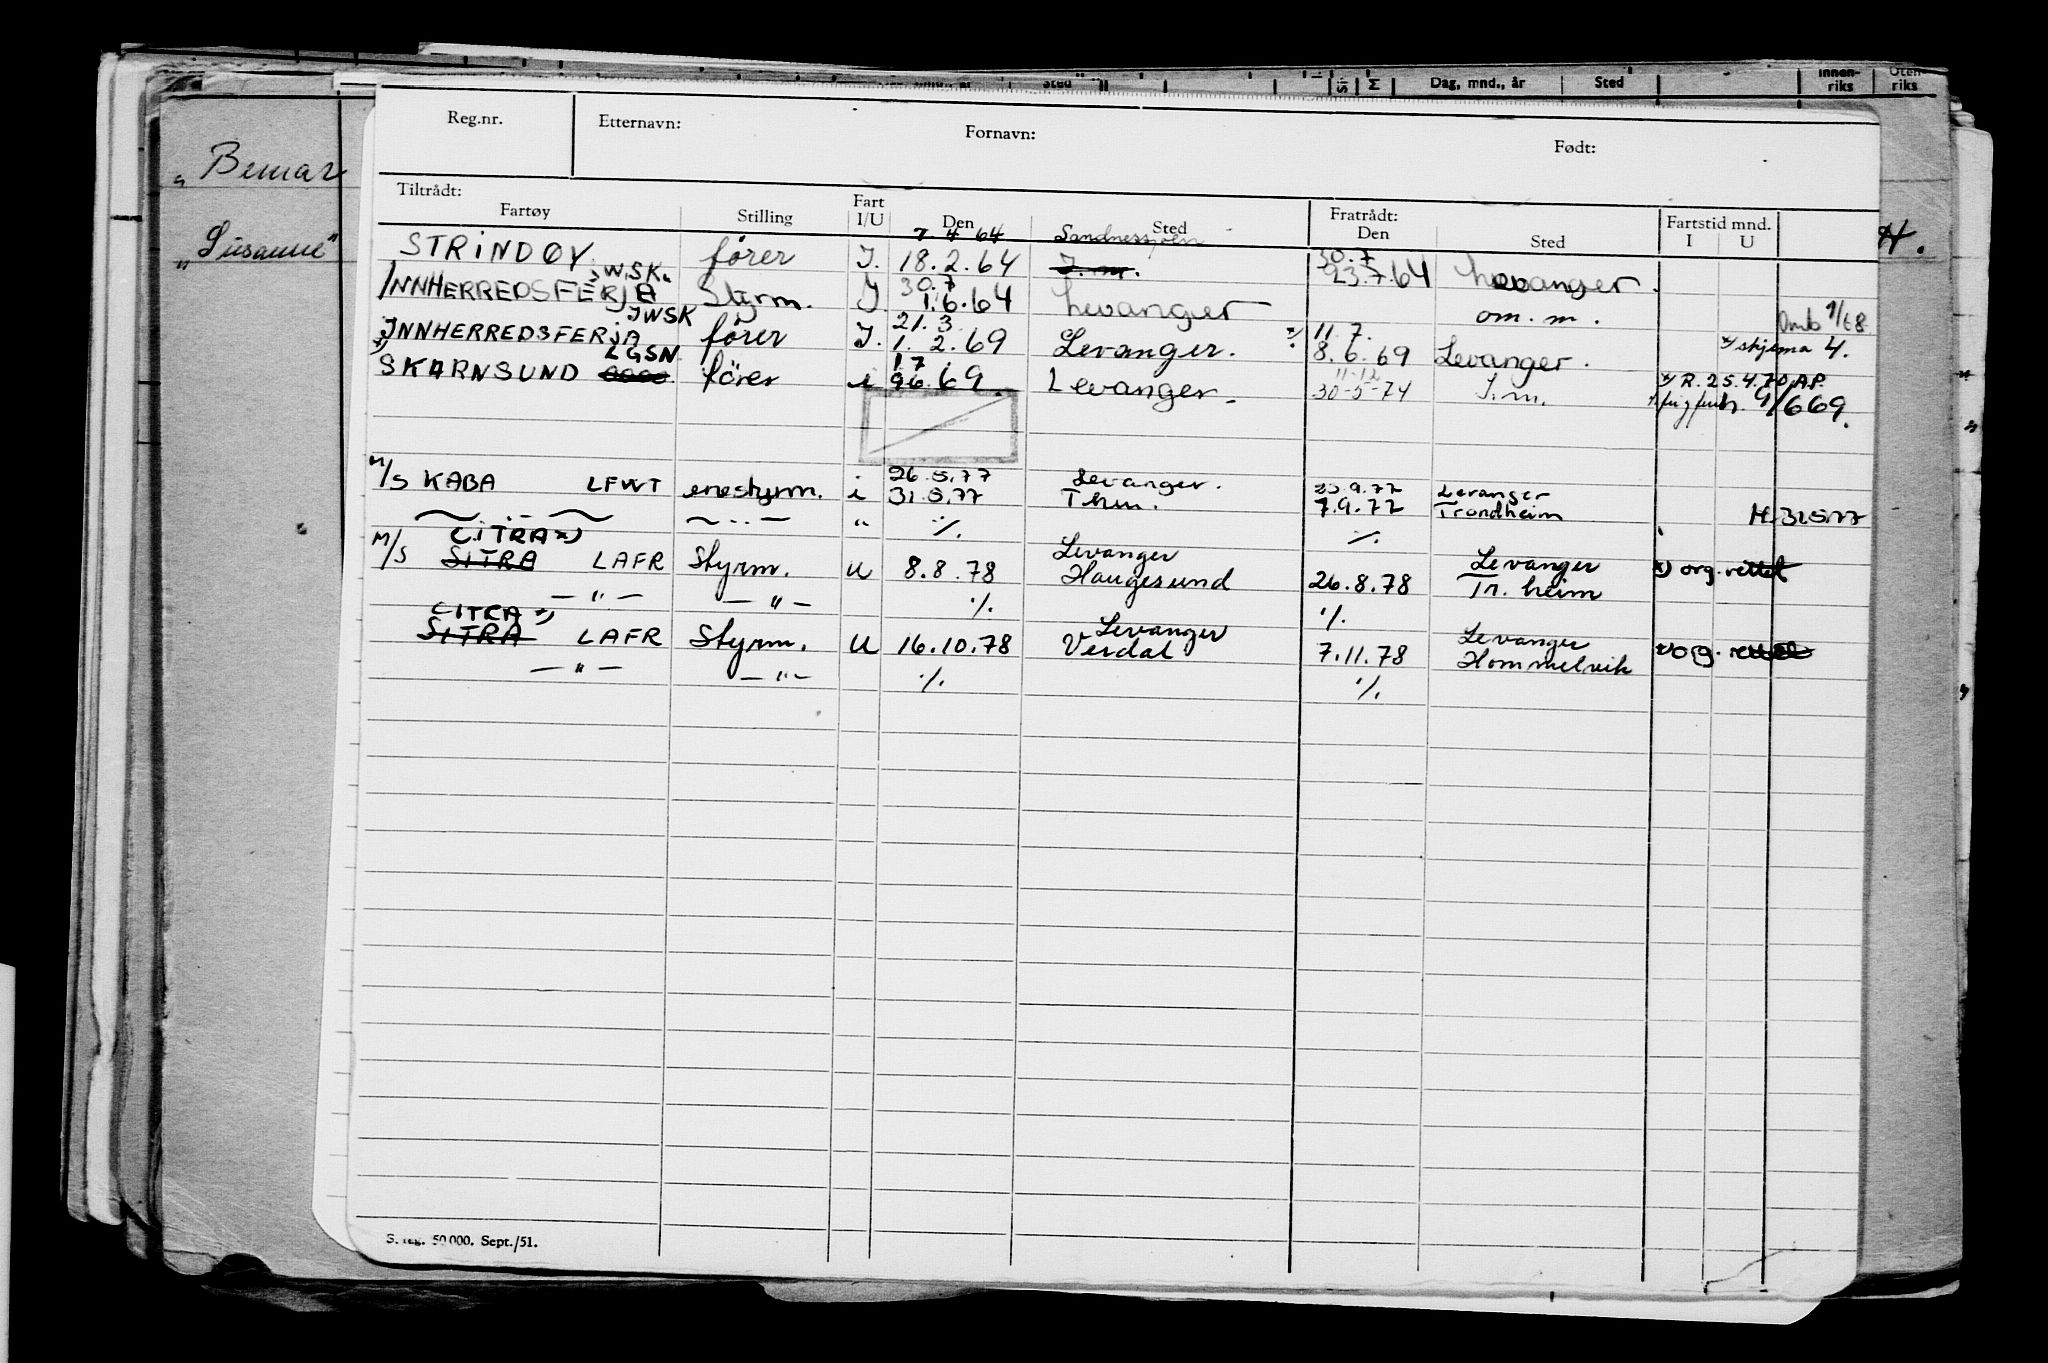 Dag, mnd., år Sted Innen-riks Uten-riks
„Bemar
„Susanne"
H.
Reg.nr. Etternavn: Fornavn: Født:
Tiltrådt: Fratrådt: Fartstid mnd.
Fartøy Stilling Fart I/U Den Sted Den Sted I U
7.4.64 Sandnessjøen 30.7
STRINDØY fører I. 18.2.64 I.m. 23.7.64 Levanger.
"WSK" 30.7
INNHERREDSFERJA Styrm. I. 1.6.64 Levanger om.m.
JWSK 21.3 11.7.
INNHERREDSFERJA fører I. 1.2.69 Levanger. 8.6.69 Levanger. x/ skjema 4.
LGSN 17 11-12
SKARNSUND fører i 96.69. Levanger. 30-5-74 I.m. x/ R.25.4.70 A.P.
9/669.
26.5.77 Levanger. 23.9.77 Levanger
M/S KABA LFWT enestyrm. i 31.5.77 Thm. 7.9.77 Trondheim H.31.5.77
— ·· — — ·· — " ·/. ·/.
CITRA x) Levanger Levanger
M/S SITRA LAFR Styrm. U 8.8.78 Haugesund 26.8.78 Tr.heim x) org. rettet
— " — — " — ·/. ·/.
CITRA x) Levanger Levanger
SITRA LAFR Styrm. U 16.10.78 Verdal 7.11.78 Hommelvik x) org. rettet
— " — — " — ·/. ·/.
S. reg. 50 000. Sept./51.